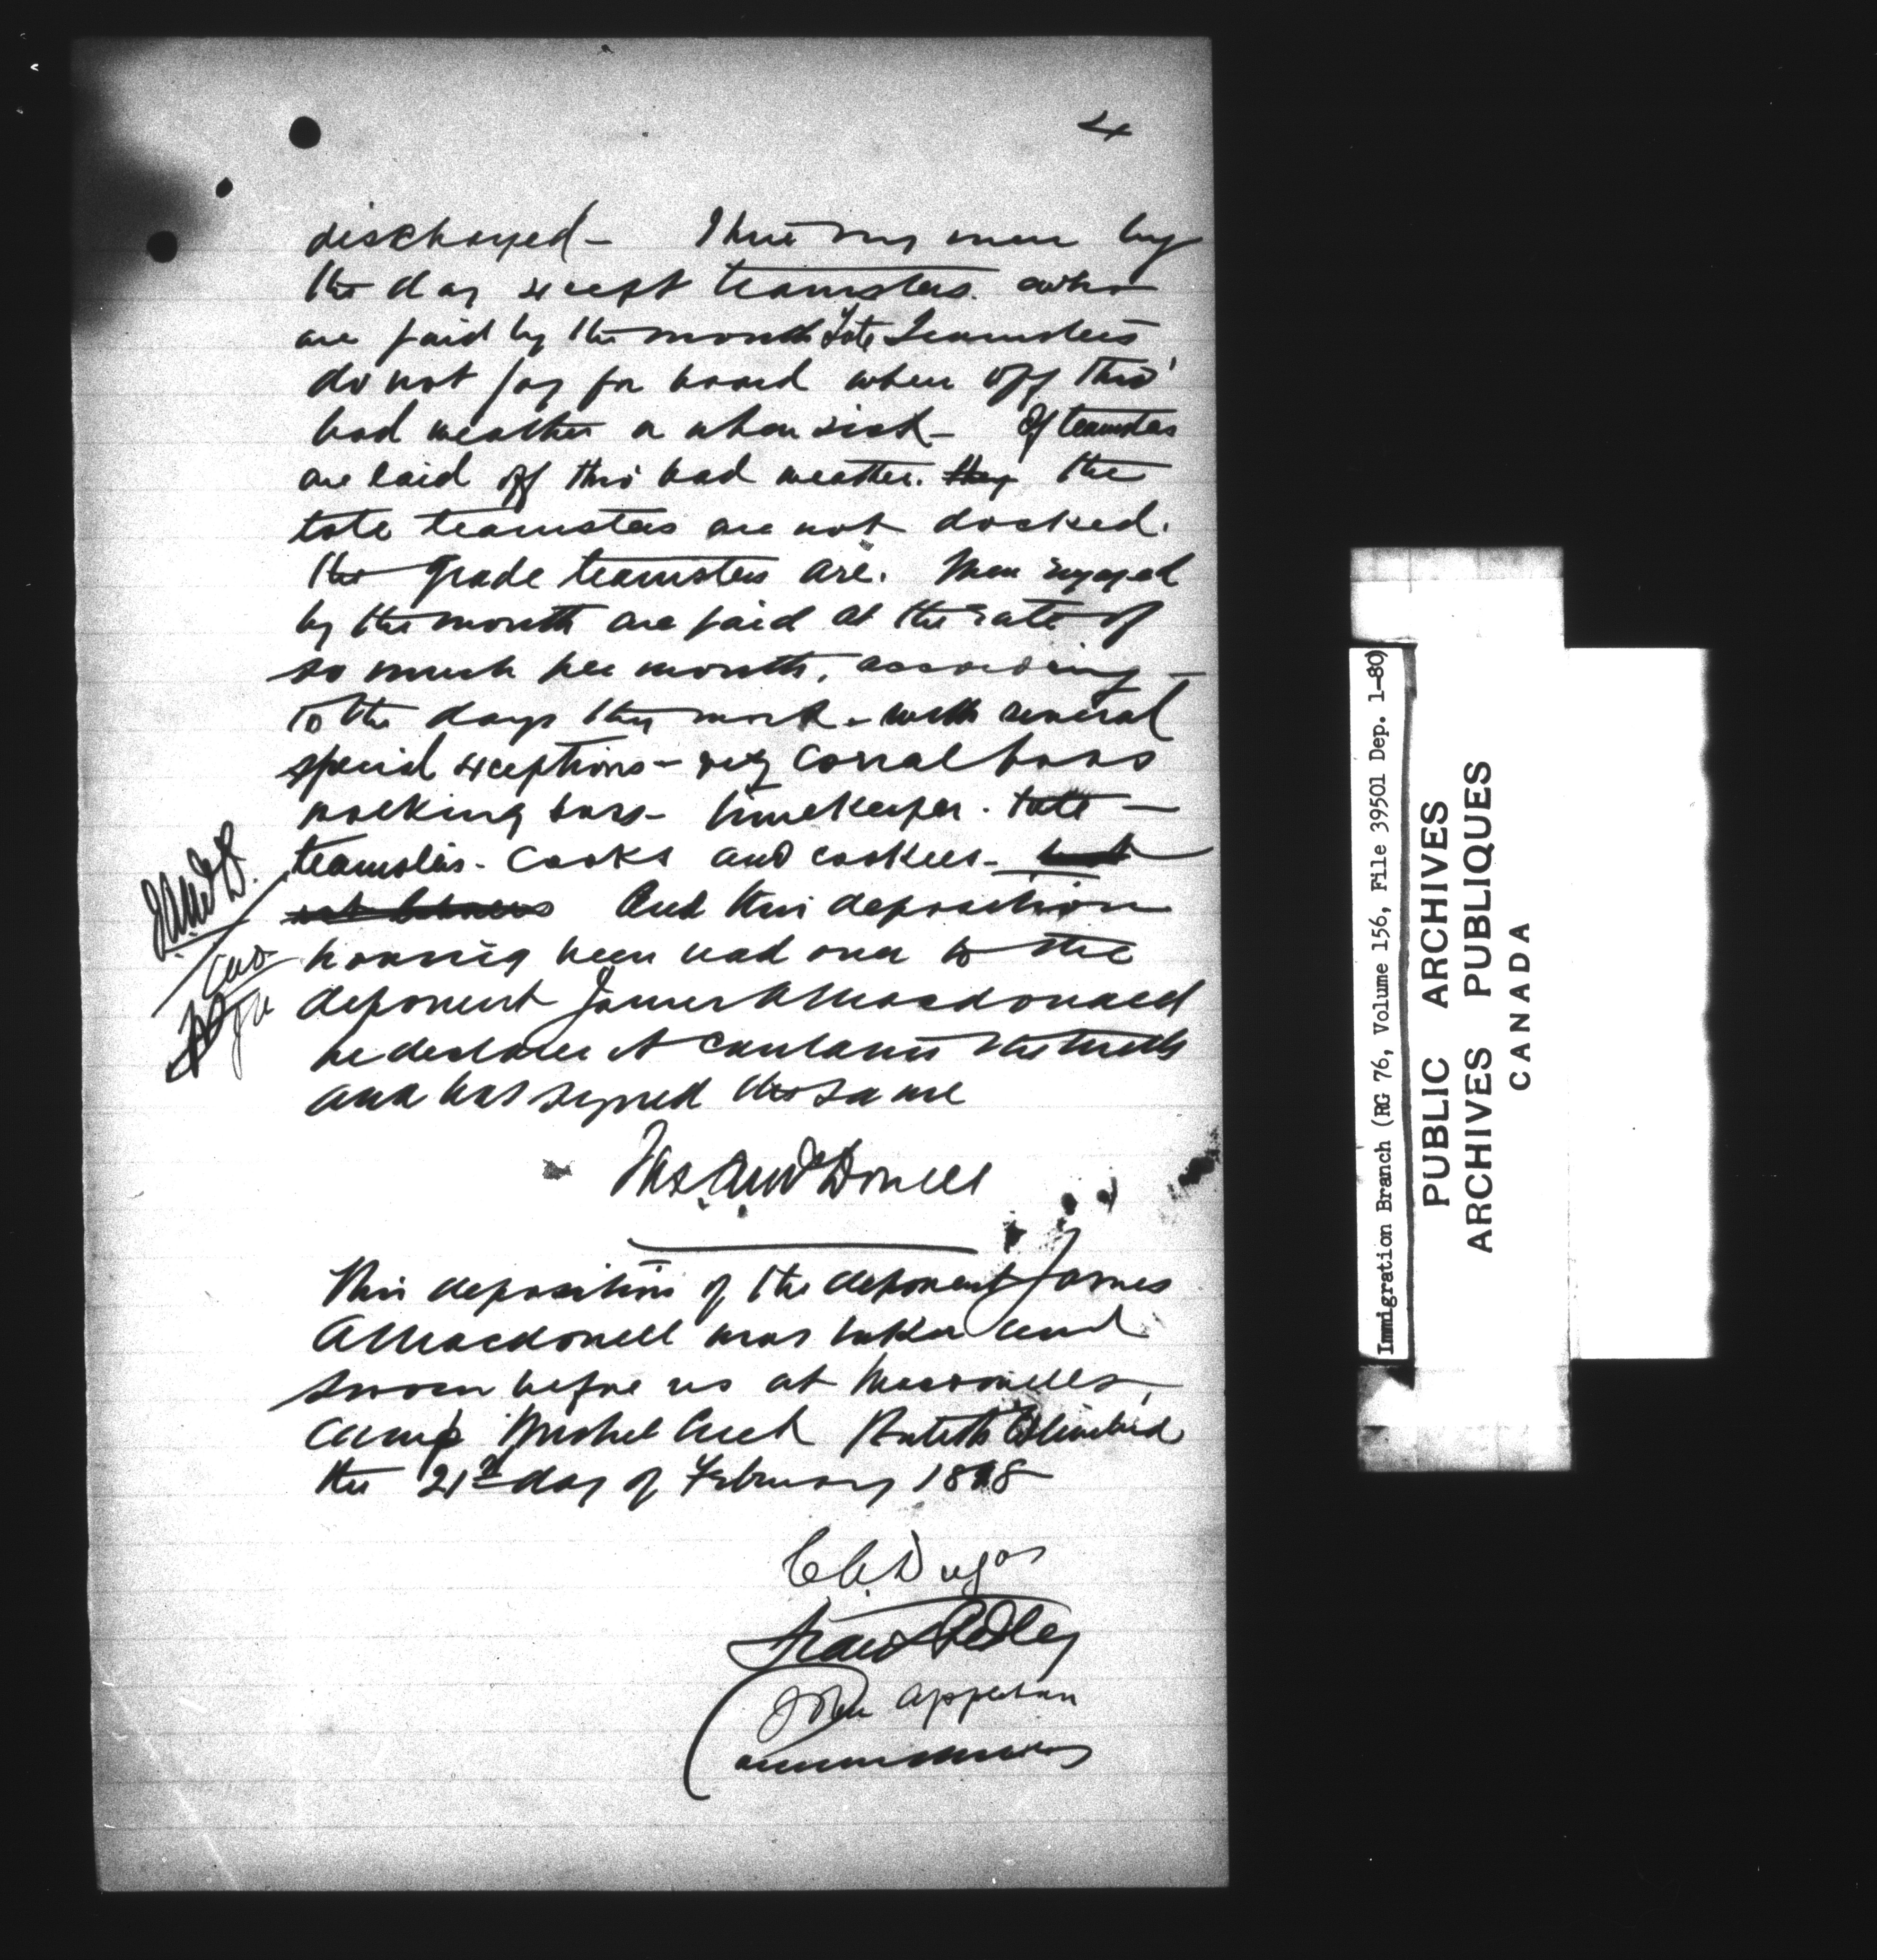 4
discharged - I hire my men by
the day except teamsters who
are paid by the month Tote Teamsters
do not pay for board when off thro'
bad weather or when sick - If teamsters
are laid off thro' bad weather. they the
tote teamsters are not docked.
the grade teamsters are. Men engaged
by the month are paid at the rate of
so much per month, according
to the days they work - with several
special exceptions - viz corral boss
walking boss - timekeeper. tote
teamsters - cooks and cookees - but
not And this deposition
having been read over to the
deponent James A Macdonald
he declares it contains the truth
and has signed the same
Jas. A McDonell
This deposition of the deponent James
A Macdonell was taken and
sworn before us at Macdonells
Camp Michel Creek British Columbia
the 21st day of February 1898
C A Dugas
Frank Pedley
John Appleton
Commissioners
Immigration Branch (RG 76, Volume 156, File 39501 Dep. 1-80)
PUBLIC ARCHIVES
ARCHIVES PUBLIQUES
CANADA